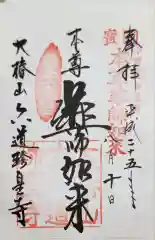 奉拝
平成二十五年
八月十日
本尊
薬師如来
大椿山六道珍皇寺